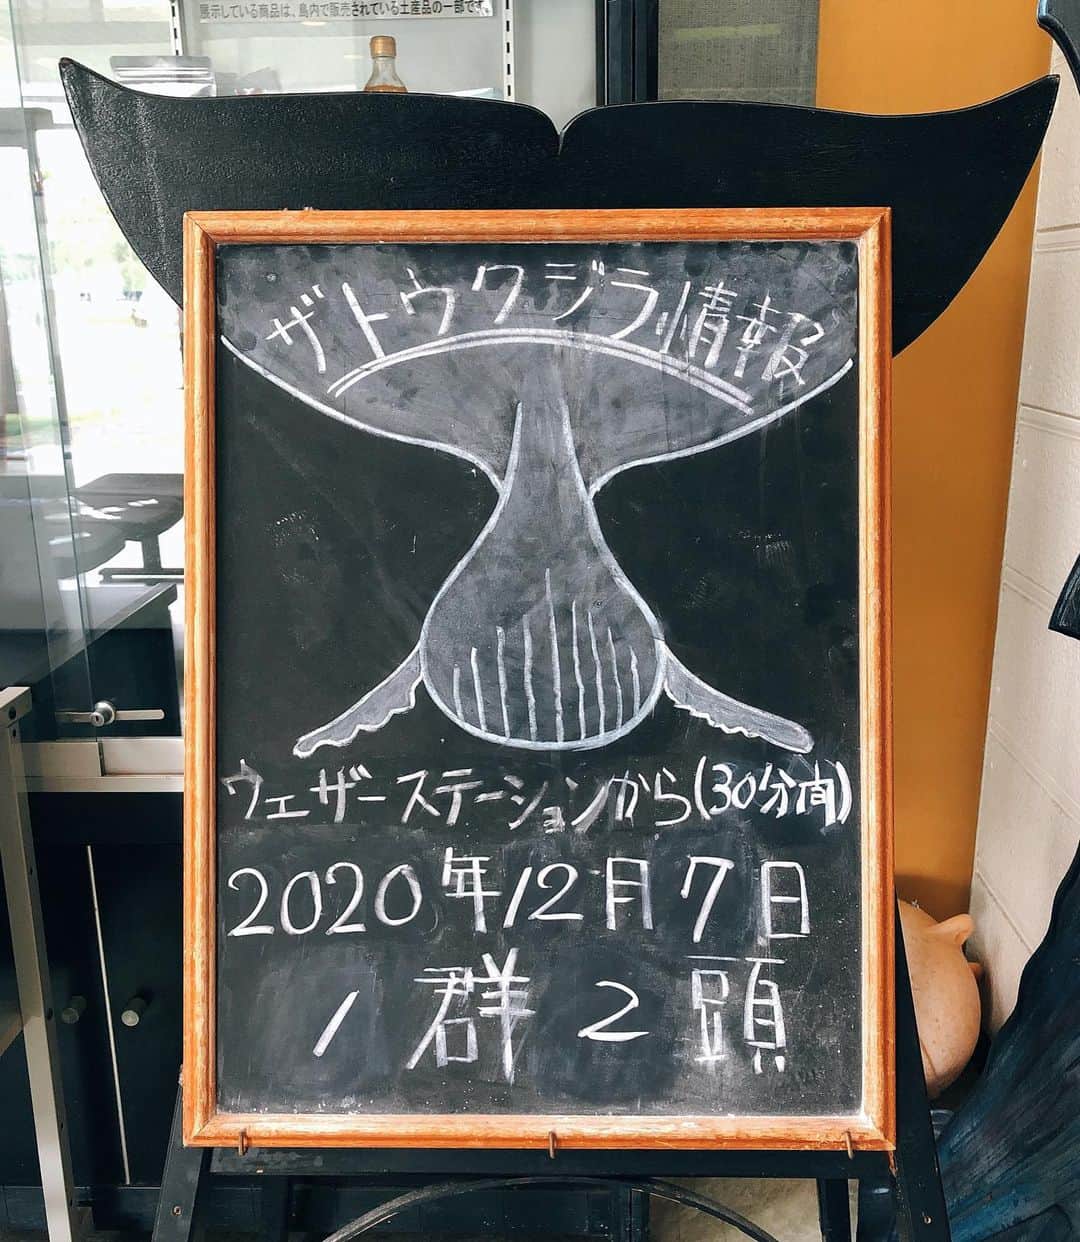 展示している商品は、島内で販売されている土産品の一部です。
ザトウクジラ情報
ウェザーステーションから(30分間)
2020年12月7日
1群2頭